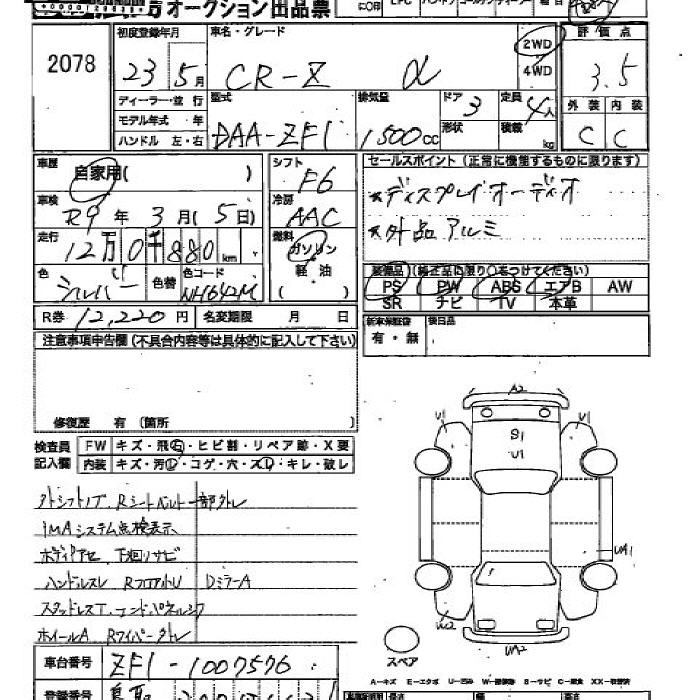 オークション出品票
2078
初度登録年月
23 5月
車名・グレード
CR-Z α
2WD
4WD
評価点
3.5
外装 内装
C C
ディーラー・並行
モデル年式 年
ハンドル 左・右
型式
DAA-ZF1
排気量
1500cc
ドア
3
形状
定員
4人
積載
kg
車歴
自家用( )
車検
R9年 3月(5日)
走行
12万0千880km
色
シルバー
色替
色コード
NH642M
シフト
F6
冷房
AAC
燃料
ガソリン
軽油
( )
R券 12,220円 名変期限 月 日
セールスポイント (正常に機能するものに限ります)
*ディスプレイオーディオ
*外品アルミ
装備品 (純正品に限り○をつけてください)
PS PW ABS エアB AW
SR ナビ TV 本革
新車保証書
有・無
後日品
注意事項申告欄 (不具合内容等は具体的に記入して下さい)
修復歴 有 (箇所 )
検査員
記入欄
FW キズ・飛石・ヒビ割・リペア跡・X要
内装 キズ・汚レ・コゲ・穴・スレ・キレ・破レ
Rシートベルト一部分トレ
IMAシステム点検表示
ボディアセ 下廻リサビ
ハンドルスレ RフロアトU DミラーA
ホイールA Rワイパートレ
車台番号 ZF1-1007576
登録番号 鳥取
A2
U1
S1
U1
U1
UA1
W2
UA2
スペア
A-キズ E-エクボ U-凹み W-補修跡 S-サビ C-腐食 XX-交換済